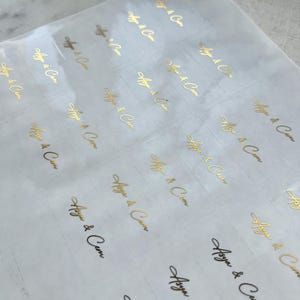 Asya & Cem
Asya & Cem
Asya & Cem
Asya & Cem
Asya & Cem
Asya & Cem
Asya & Cem
Asya & Cem
Asya & Cem
Asya & Cem
Asya & Cem
Asya & Cem
Asya & Cem
Asya & Cem
Asya & Cem
Asya & Cem
Asya & Cem
Asya & Cem
Asya & Cem
Asya & Cem